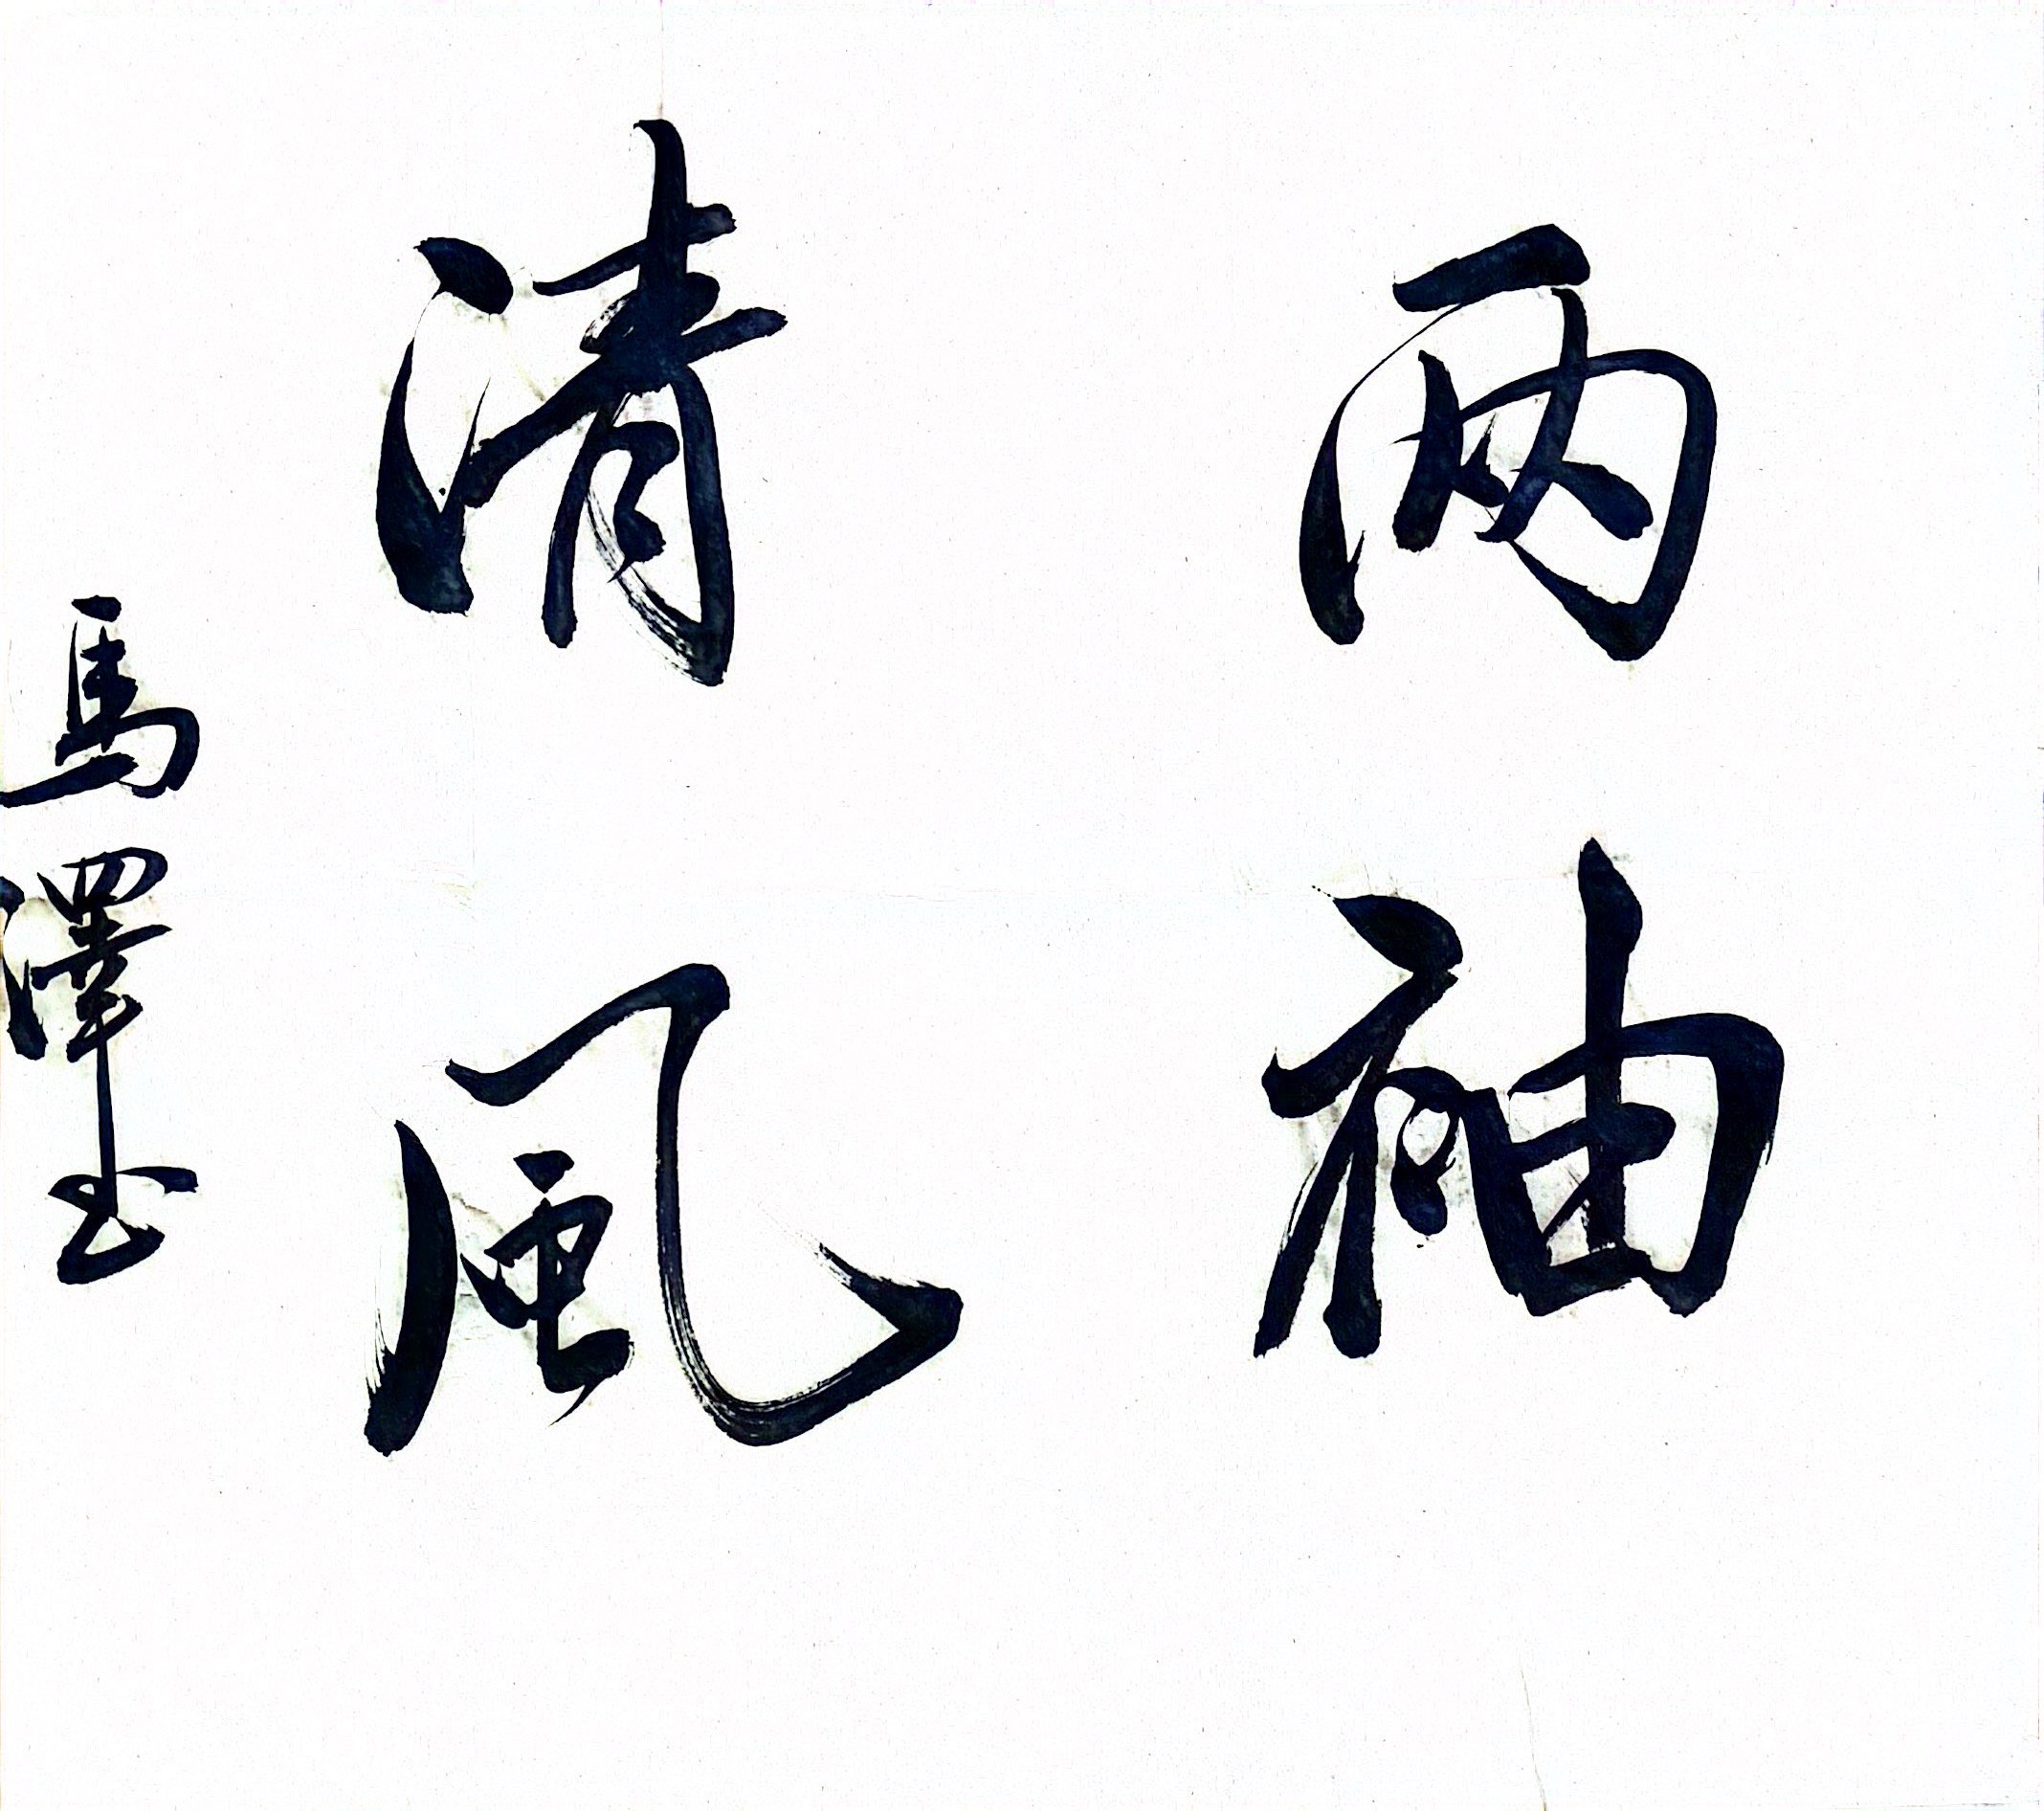 兩袖
清風
馬澤玉